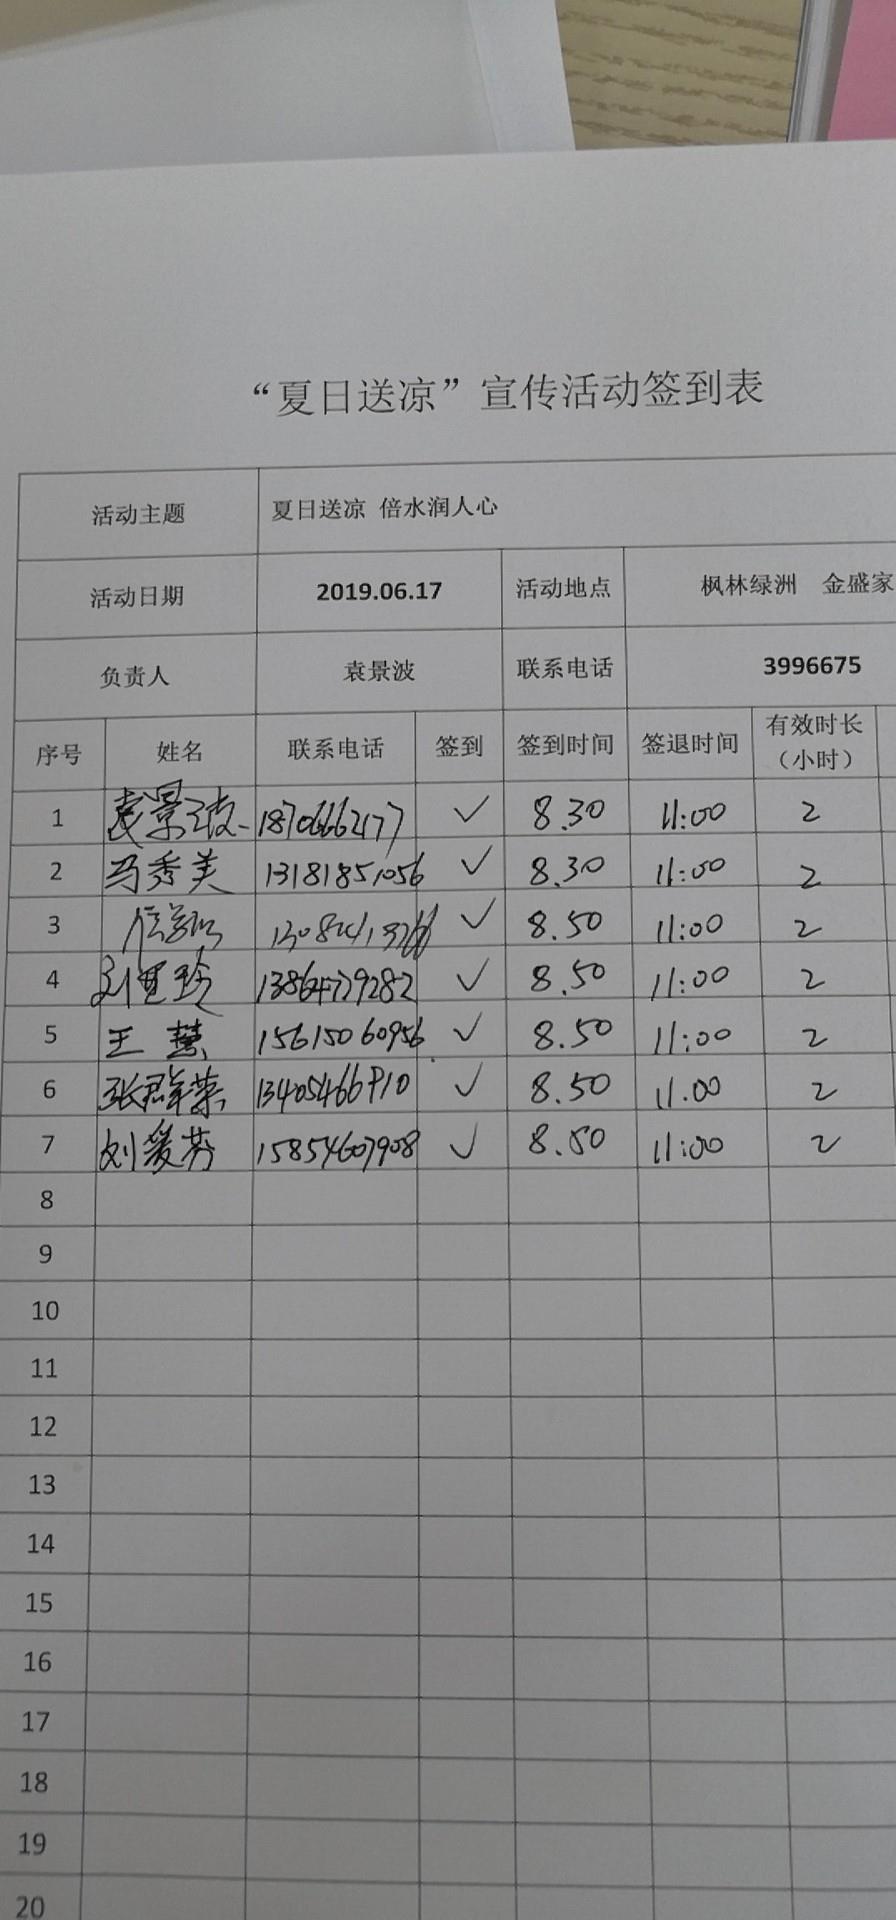 “夏日送凉”宣传活动签到表
活动主题 夏日送凉 倍水润人心
活动日期 2019.06.17 活动地点 枫林绿洲 金盛家
负责人 袁景波 联系电话 3996675
序号 姓名 联系电话 签到 签到时间 签退时间 有效时长（小时）
1 袁景波 18706662177 ✓ 8.30 11:00 2
2 马秀美 13181851056 ✓ 8.30 11:00 2
3 ✓ 8.50 11:00 2
4 13864729282 ✓ 8.50 11:00 2
5 王慧 15615060956 ✓ 8.50 11:00 2
6 张群荣 13405466910 ✓ 8.50 11.00 2
7 刘爱芬 15854607908 ✓ 8.50 11:00 2
8
9
10
11
12
13
14
15
16
17
18
19
20